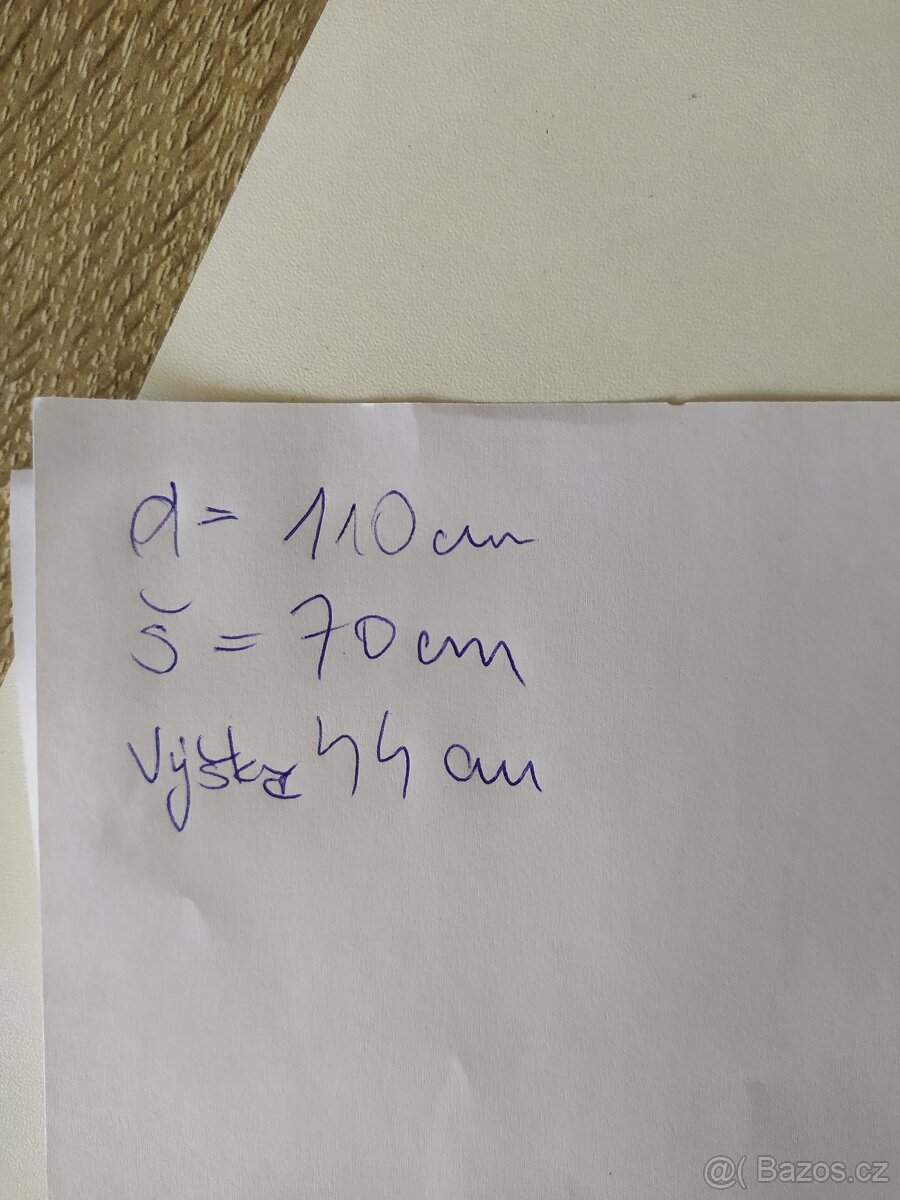 d = 110 cm
š = 70 cm
výška 44 cm
@( Bazos.cz